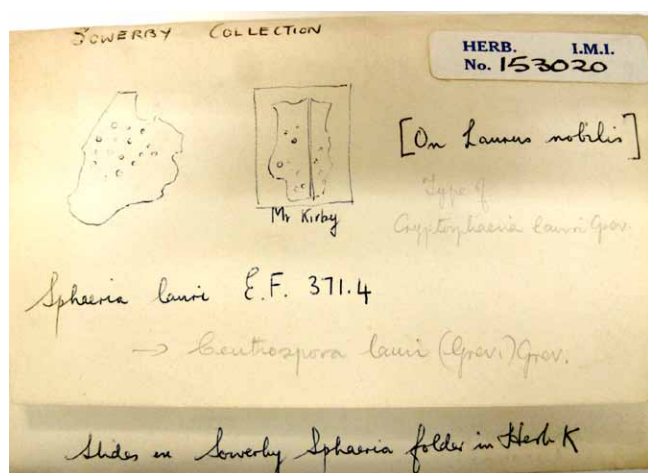 SOWERBY COLLECTION
HERB. I.M.I.
No. 153020
[On Laurus nobilis]
Mr Kirby
Type of
Cryptosphaeria lauri Grev.
Sphaeria lauri E.F. 371.4
→ Ceuthospora lauri (Grev.) Grev.
Slides ex Sowerby Sphaeria folder in Herb K